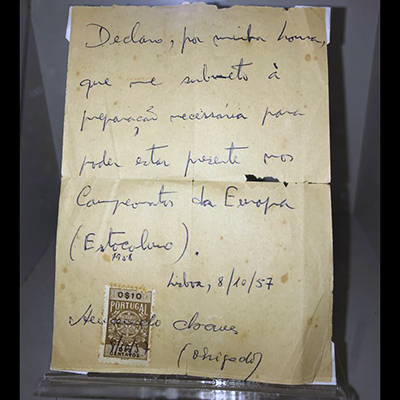 Declaro, por minha honra,
que me submeto à
preparação necessária para
poder estar presente nos
Campeonatos da Europa
(Estocolmo).
1958
Lisboa, 8/10/57
0$10
PORTUGAL
CENTAVOS
(Obrigado)